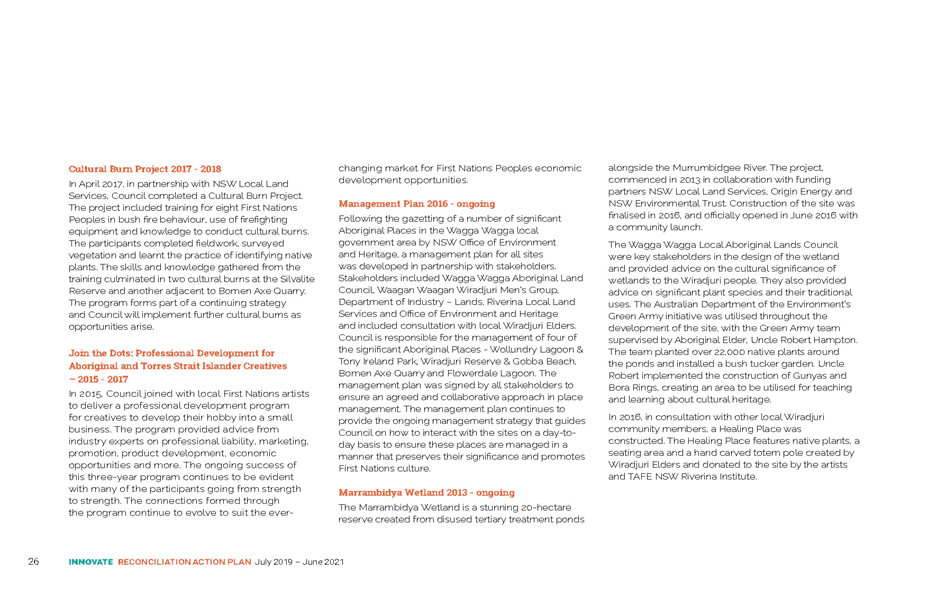 Cultural Burn Project 2017 - 2018
In April 2017, in partnership with NSW Local Land
Services, Council completed a Cultural Burn Project.
The project included training for eight First Nations
Peoples in bush fire behaviour, use of firefighting
equipment and knowledge to conduct cultural burns.
The participants completed fieldwork, surveyed
vegetation and learnt the practice of identifying native
plants. The skills and knowledge gathered from the
training culminated in two cultural burns at the Silvalite
Reserve and another adjacent to Bomen Axe Quarry.
The program forms part of a continuing strategy
and Council will implement further cultural burns as
opportunities arise.
Join the Dots: Professional Development for
Aboriginal and Torres Strait Islander Creatives
– 2015 - 2017
In 2015, Council joined with local First Nations artists
to deliver a professional development program
for creatives to develop their hobby into a small
business. The program provided advice from
industry experts on professional liability, marketing,
promotion, product development, economic
opportunities and more. The ongoing success of
this three-year program continues to be evident
with many of the participants going from strength
to strength. The connections formed through
the program continue to evolve to suit the ever-
changing market for First Nations Peoples economic
development opportunities.
Management Plan 2016 - ongoing
Following the gazetting of a number of significant
Aboriginal Places in the Wagga Wagga local
government area by NSW Office of Environment
and Heritage, a management plan for all sites
was developed in partnership with stakeholders.
Stakeholders included Wagga Wagga Aboriginal Land
Council, Waagan Waagan Wiradjuri Men's Group,
Department of Industry – Lands, Riverina Local Land
Services and Office of Environment and Heritage
and included consultation with local Wiradjuri Elders.
Council is responsible for the management of four of
the significant Aboriginal Places - Wollundry Lagoon &
Tony Ireland Park, Wiradjuri Reserve & Gobba Beach,
Bomen Axe Quarry and Flowerdale Lagoon. The
management plan was signed by all stakeholders to
ensure an agreed and collaborative approach in place
management. The management plan continues to
provide the ongoing management strategy that guides
Council on how to interact with the sites on a day-to-
day basis to ensure these places are managed in a
manner that preserves their significance and promotes
First Nations culture.
Marrambidya Wetland 2013 - ongoing
The Marrambidya Wetland is a stunning 20-hectare
reserve created from disused tertiary treatment ponds
alongside the Murrumbidgee River. The project,
commenced in 2013 in collaboration with funding
partners NSW Local Land Services, Origin Energy and
NSW Environmental Trust. Construction of the site was
finalised in 2016, and officially opened in June 2016 with
a community launch.
The Wagga Wagga Local Aboriginal Lands Council
were key stakeholders in the design of the wetland
and provided advice on the cultural significance of
wetlands to the Wiradjuri people. They also provided
advice on significant plant species and their traditional
uses. The Australian Department of the Environment's
Green Army initiative was utilised throughout the
development of the site, with the Green Army team
supervised by Aboriginal Elder, Uncle Robert Hampton.
The team planted over 22,000 native plants around
the ponds and installed a bush tucker garden. Uncle
Robert implemented the construction of Gunyas and
Bora Rings, creating an area to be utilised for teaching
and learning about cultural heritage.
In 2016, in consultation with other local Wiradjuri
community members, a Healing Place was
constructed. The Healing Place features native plants, a
seating area and a hand carved totem pole created by
Wiradjuri Elders and donated to the site by the artists
and TAFE NSW Riverina Institute.
26 INNOVATE RECONCILIATION ACTION PLAN July 2019 – June 2021